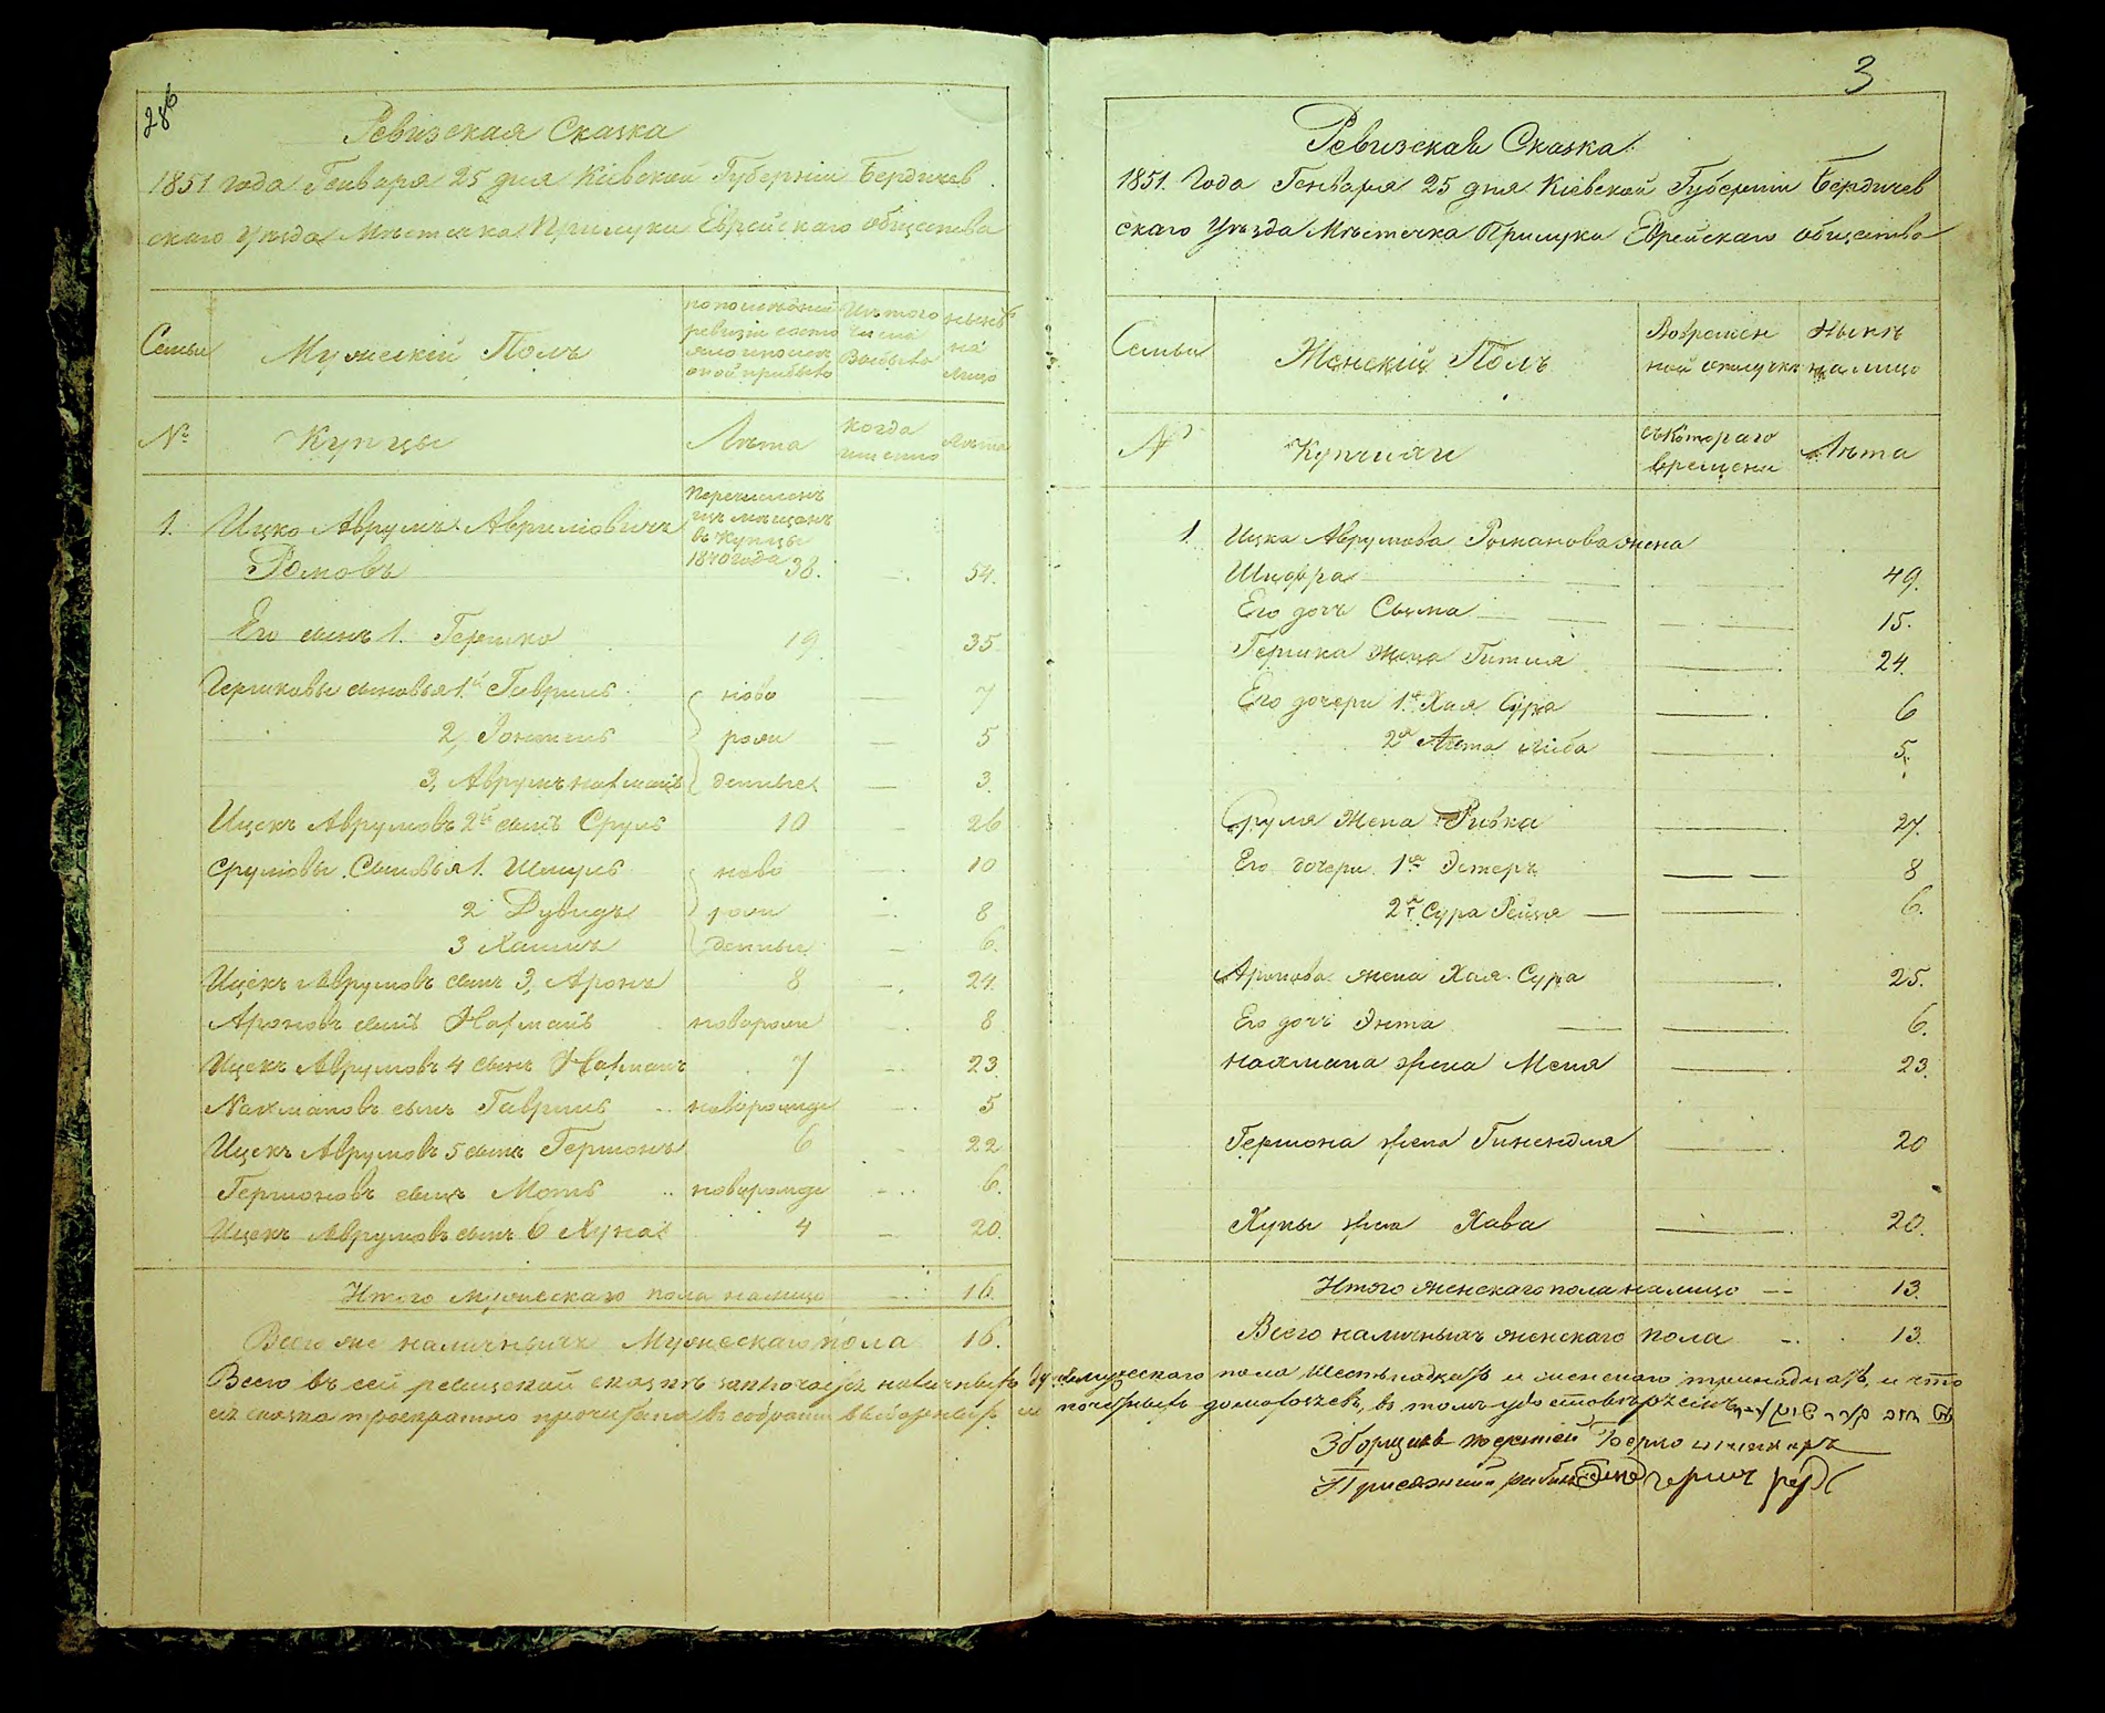 286
Ревизская Сказка
1851 года Генваря 25 дня Кіевской Губерніи Бердичев
скаго Уѣзда Мѣстечка Прилуки Еврейскаго общества
Семьи
Мужескій Полъ
Изъ того
числа
выбыло
нынѣ
на
лицо
№
Купцы
Лѣта
когда
именно
Лѣта
Перечисленъ
изъ мѣщанъ
въ купцы
1840 года
1. Ицко Аврумъ Авримовичъ
Ромовъ 38. 54.
Его сынъ 1. Гершко 19. 35
Гершковы сыновья 1й Гаврилъ ново 7
2, рож 5
3, Аврумъ Нахманъ денные 3.
Ицекъ Аврумовъ 2й сынъ Сруль 10 26
Срулювы Сыновья 1. Шмуль ново 10
2 Дувидъ рож 8
3 Хаимъ денные 6.
Ицекъ Аврумовъ сынъ 3, Аронъ 8 24.
Ароновъ сынъ Нахманъ новорож 8
Ицекъ Аврумовъ 4 сынъ Нахманъ 7 23.
Нахмановъ сынъ Гаврилъ новорожде 5
Ицекъ Аврумовъ 5 сынъ Гершонъ 6 22
Гершоновъ сынъ Мотъ новорожде 6.
Ицекъ Аврумовъ сынъ 6 Хуна 4 20.
Итого мужескаго пола налицо 16.
Всего же наличныхъ Мужескаго пола 16.
3
Ревизская Сказка
1851. Года Генваря 25 дня Кіевской Губерніи Бердичев
скаго Уѣзда Мѣстечка Прилуки Еврейскаго общества
Семьи
Женскій Полъ
Вовремен
ной отлучкѣ
Нынѣ
на лицо
№
Купчихи
съ котораго
времени
Лѣта
1. Ицка Аврумова Романова жена
Шидвра 49.
Его дочь Сыма 15.
Гершка жена Гитля 24.
Его дочери 1я Хая Сура 6
2я Либа 5.
Сруля жена Ривка 27.
Его дочери 1я Эстеръ 8
2я Сура Рейзя 6.
Аронова жена Хая Сура 25.
Его дочь Энта 6.
Нахмана жена Меня 23.
Гершона жена Гинендля 20
Хуны жена Хава 20.
Итого женскаго пола налицо 13.
Всего наличныхъ женскаго пола 13.
Всего въ сей ревизской сказкѣ наличныхъ душъ мужескаго пола шестьнадцать и женскаго тринадцать, и что
сія сказка троекратно прочитана въ собраніи выборныхъ и почотныхъ домохозяевъ, въ томъ удостовѣряемъ
Зборщикъ податей Берко
Присяжный рабинъ